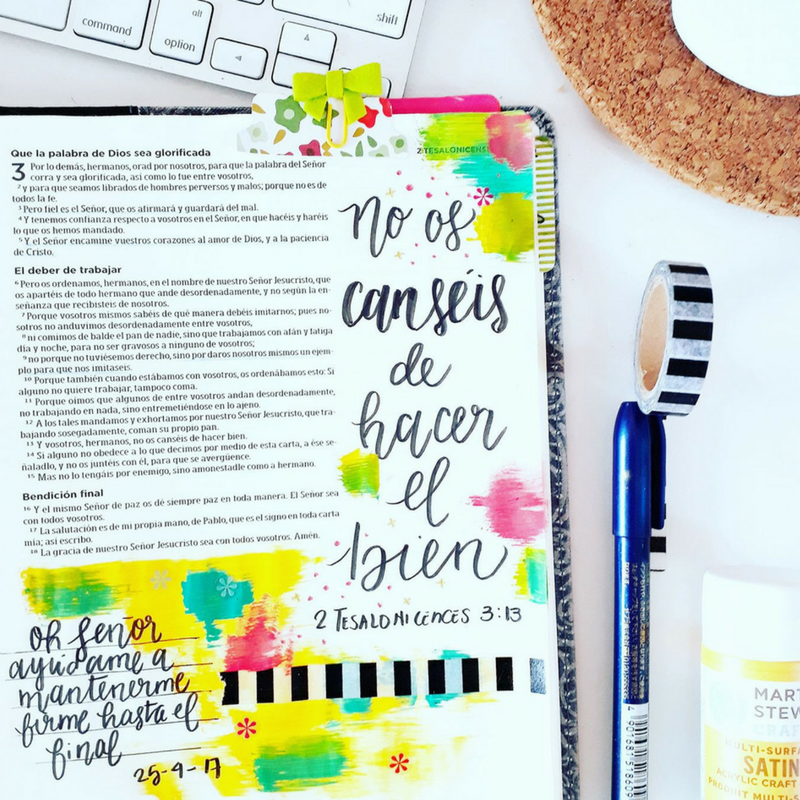 command
alt
option
shift
2 TESALONICENS
Que la palabra de Dios sea glorificada
3 Por lo demás, hermanos, orad por nosotros, para que la palabra del Señor
corra y sea glorificada, así como lo fue entre vosotros,
2 y para que seamos librados de hombres perversos y malos; porque no es de
todos la fe.
3 Pero fiel es el Señor, que os afirmará y guardará del mal.
4 Y tenemos confianza respecto a vosotros en el Señor, en que hacéis y haréis
lo que os hemos mandado.
5 Y el Señor encamine vuestros corazones al amor de Dios, y a la paciencia
de Cristo.
El deber de trabajar
6 Pero os ordenamos, hermanos, en el nombre de nuestro Señor Jesucristo, que
os apartéis de todo hermano que ande desordenadamente, y no según la en-
señanza que recibisteis de nosotros.
7 Porque vosotros mismos sabéis de qué manera debéis imitarnos; pues no-
sotros no anduvimos desordenadamente entre vosotros,
8 ni comimos de balde el pan de nadie, sino que trabajamos con afán y fatiga
día y noche, para no ser gravosos a ninguno de vosotros;
9 no porque no tuviésemos derecho, sino por daros nosotros mismos un ejem-
plo para que nos imitaseis.
10 Porque también cuando estábamos con vosotros, os ordenábamos esto: Si
alguno no quiere trabajar, tampoco coma.
11 Porque oímos que algunos de entre vosotros andan desordenadamente,
no trabajando en nada, sino entremetiéndose en lo ajeno.
12 A los tales mandamos y exhortamos por nuestro Señor Jesucristo, que tra-
bajando sosegadamente, coman su propio pan.
13 Y vosotros, hermanos, no os canséis de hacer bien.
14 Si alguno no obedece a lo que decimos por medio de esta carta, a ése se-
ñaladlo, y no os juntéis con él, para que se avergüence.
15 Mas no lo tengáis por enemigo, sino amonestadle como a hermano.
Bendición final
16 Y el mismo Señor de paz os dé siempre paz en toda manera. El Señor sea
con todos vosotros.
17 La salutación es de mi propia mano, de Pablo, que es el signo en toda carta
mía; así escribo.
18 La gracia de nuestro Señor Jesucristo sea con todos vosotros. Amén.
no os
canséis
de
hacer
el
bien
2 TESALONICENCES 3:13
oh señor
ayúdame a
mantenerme
firme hasta el
final
25-4-17
4 901681 518609
MART
STEW
CRAF
MULTI-SURFA
SATIN
ACRYLIC CRAFT
PRODUIT MULTI-S